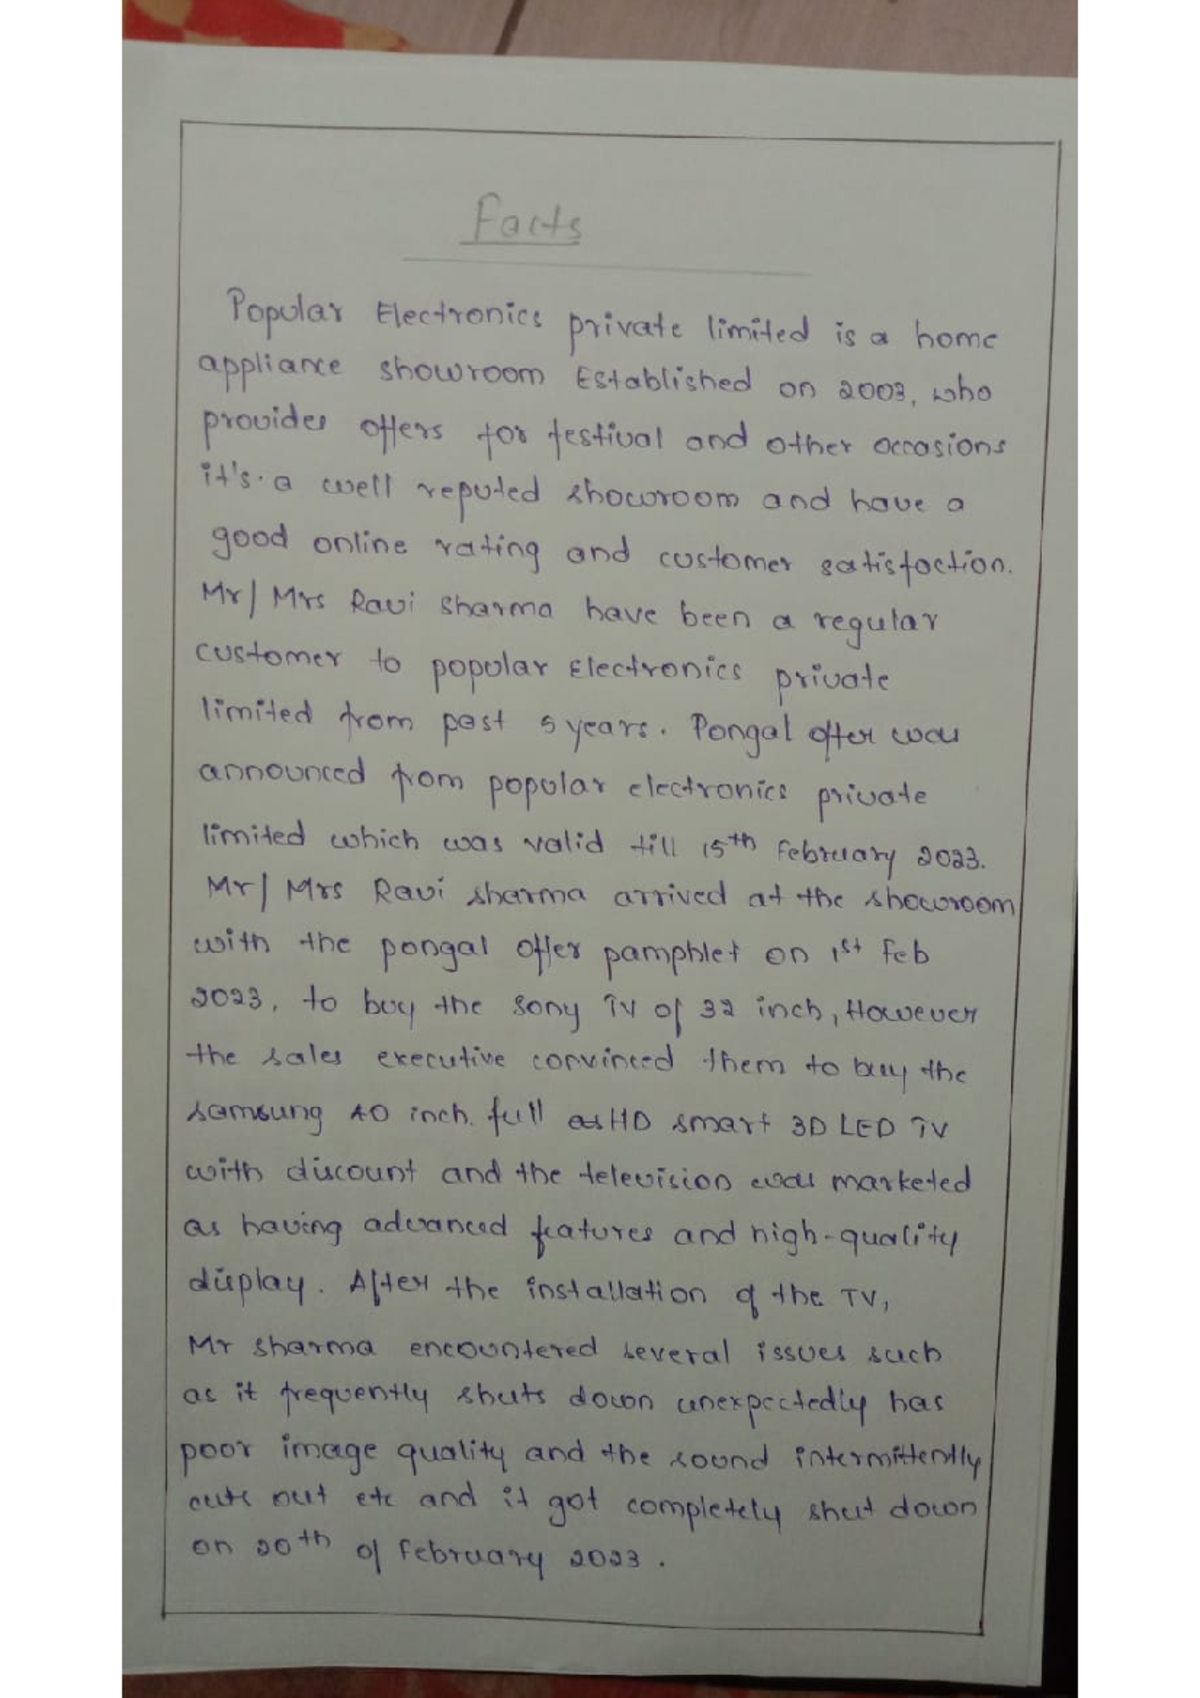 Facts
Popular Electronics private limited is a home
appliance showroom Established on 2003, who
provides offers for festival and other occasions
it's a well reputed showroom and have a
good online rating and customer satisfaction.
Mr/ Mrs Ravi Sharma have been a regular
customer to popular Electronics private
limited from past 5 years. Pongal offer was
announced from popular electronics private
limited which was valid till 15th February 2023.
Mr/ Mrs Ravi sharma arrived at the showroom
with the pongal offer pamphlet on 1st Feb
2023, to buy the Sony TV of 32 inch, However
the sales executive convinced them to buy the
samsung 40 inch. full HD smart 3D LED TV
with discount and the television was marketed
as having advanced features and high-quality
display. After the installation of the TV,
Mr sharma encountered several issues such
as it frequently shuts down unexpectedly has
poor image quality and the sound intermittently
cuts out etc and it got completely shut down
on 20th of February 2023.